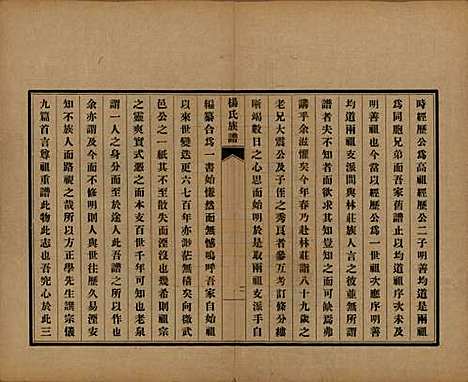 時經歷公爲高祖經歷公二子明善均道是兩祖
爲同胞兄弟而吾家舊譜止以均道祖序次未及
明善祖也今當以經歷公爲一世祖次應序明善
均道兩祖支派間與林莊族諧八十九歲之
講乎余滋懼矣今春乃赴林莊
祖支不知而求其知豈知之而可缺焉弗
老兄大震公及子侄之秀員者參互考訂條分
晰竭數日之心思而始明於是取兩祖支派手自
楊氏族譜
二
編纂合爲一書始慊然而無憾嗚呼吾家自始祖
以來世變迭更六七百年亦渺茫無稽矣向微武
邑公之一紙其不至散失而湮沒也幾希意者祖
之靈爽實式憑之而本支百世千年可知也老泉
謂一人之身分而至於途人此吾譜之所以作也
余亦謂及今而不修明則奕葉以後歷久易湮安
知不族人而路祖之哉所以方正學先生譔宗儀
九篇首言尊祖重譜此物此志也吾究心於此三